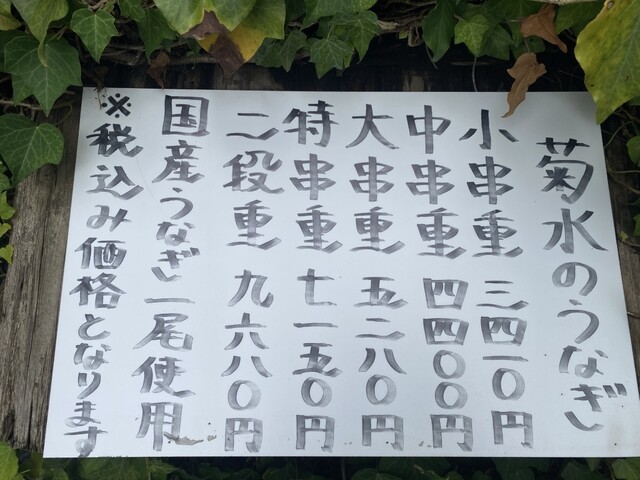 菊水のうなぎ
小串重 三四一〇円
中串重 四四〇〇円
大串重 五二八〇円
特串重 七一五〇円
二段重 九六八〇円
国産うなぎ一尾使用
※税込み価格となります